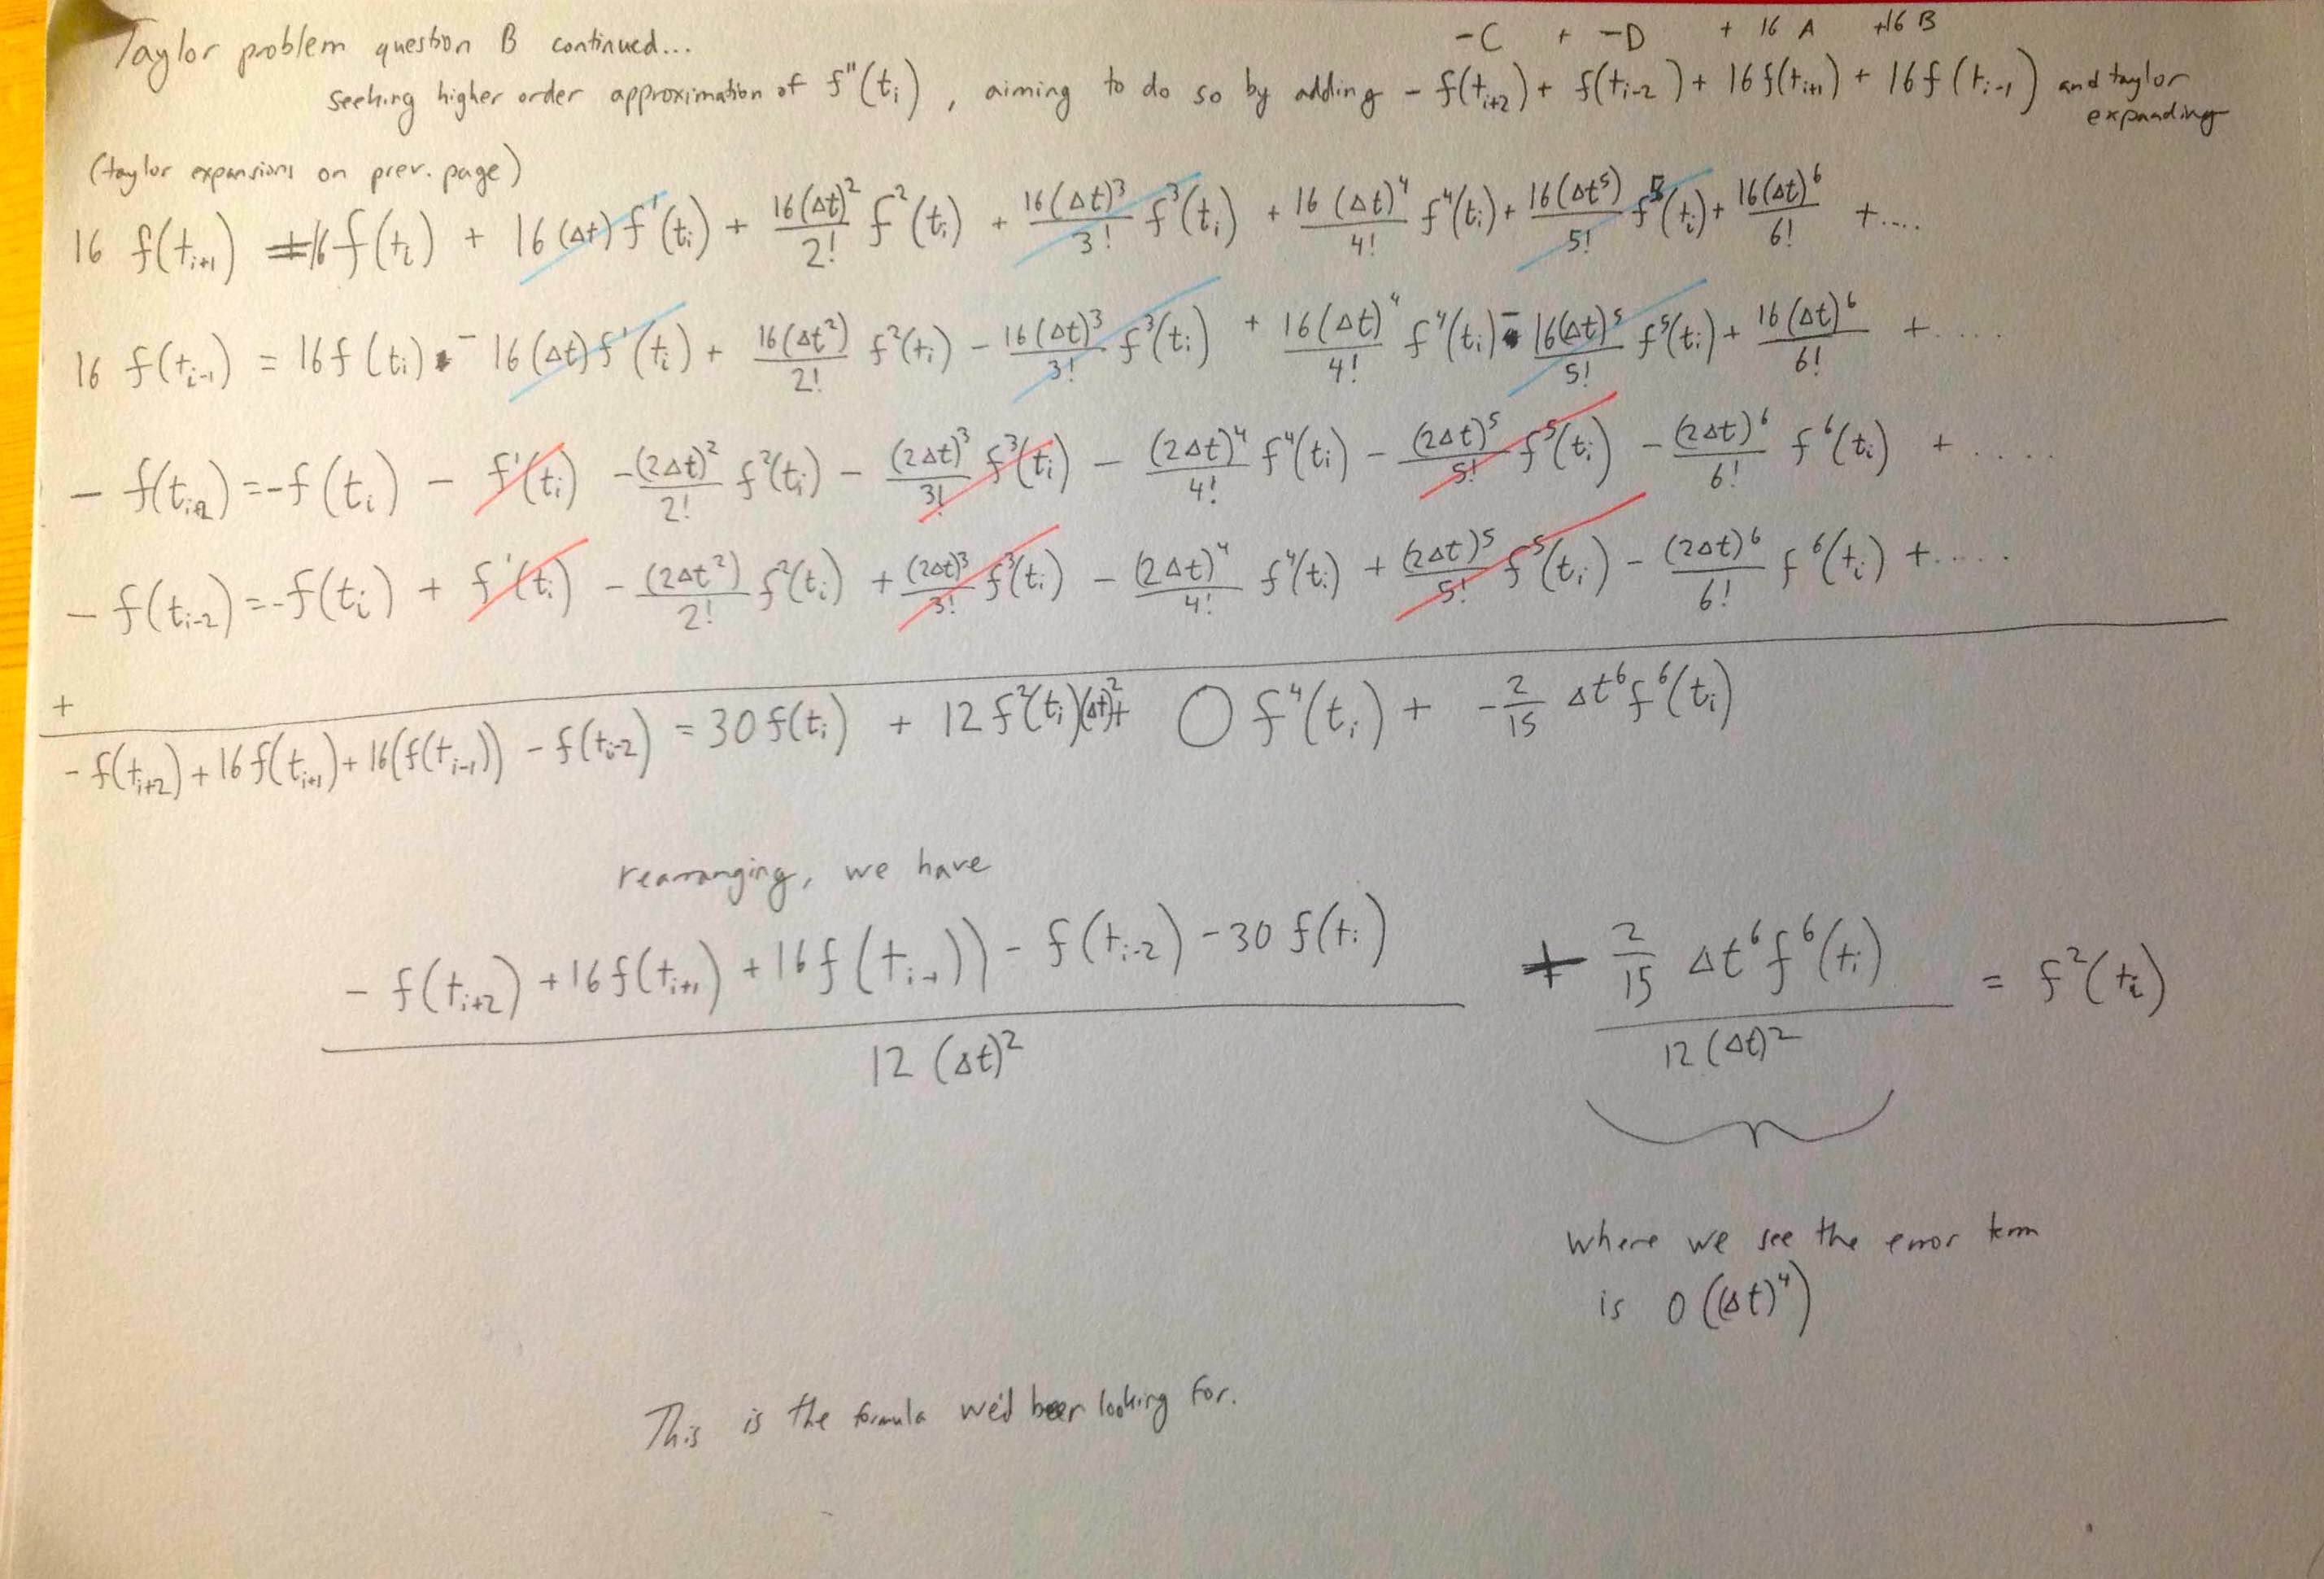 -C + -D + 16 A +16 B
Taylor problem question B continued...
seeking higher order approximation of f"(t_i), aiming to do so by adding - f(t_{i+2}) + f(t_{i-2}) + 16 f(t_{i+1}) + 16 f(t_{i-1}) and taylor
expanding
(taylor expansions on prev. page)
16 f(t_{i+1}) = 16 f(t_i) + 16 (Δt) f'(t_i) + 16(Δt)^2/2! f^2(t_i) + 16(Δt)^3/3! f^3(t_i) + 16 (Δt)^4/4! f^4(t_i) + 16(Δt^5)/5! f^5(t_i) + 16(Δt)^6/6! + ....
16 f(t_{i-1}) = 16 f(t_i) - 16 (Δt) f'(t_i) + 16(Δt^2)/2! f^2(t_i) - 16(Δt)^3/3! f^3(t_i) + 16(Δt)^4/4! f^4(t_i) - 16(Δt)^5/5! f^5(t_i) + 16(Δt)^6/6! + .....
- f(t_{i+2}) = -f(t_i) - f'(t_i) - (2Δt)^2/2! f^2(t_i) - (2Δt)^3/3! f^3(t_i) - (2Δt)^4/4! f^4(t_i) - (2Δt)^5/5! f^5(t_i) - (2Δt)^6/6! f^6(t_i) + .....
- f(t_{i-2}) = -f(t_i) + f'(t_i) - (2Δt^2)/2! f^2(t_i) + (2Δt)^3/3! f^3(t_i) - (2Δt)^4/4! f^4(t_i) + (2Δt)^5/5! f^5(t_i) - (2Δt)^6/6! f^6(t_i) + .....
+
- f(t_{i+2}) + 16 f(t_{i+1}) + 16(f(t_{i-1})) - f(t_{i-2}) = 30 f(t_i) + 12 f^2(t_i)(Δt)^2 + 0 f^4(t_i) + - 2/15 Δt^6 f^6(t_i)
rearranging, we have
- f(t_{i+2}) + 16 f(t_{i+1}) + 16 f(t_{i-1})) - f(t_{i-2}) - 30 f(t_i) + 2/15 Δt^6 f^6(t_i) = f^2(t_i)
12 (Δt)^2 12 (Δt)^2
where we see the error term
is O((Δt)^4)
This is the formula we'd been looking for.